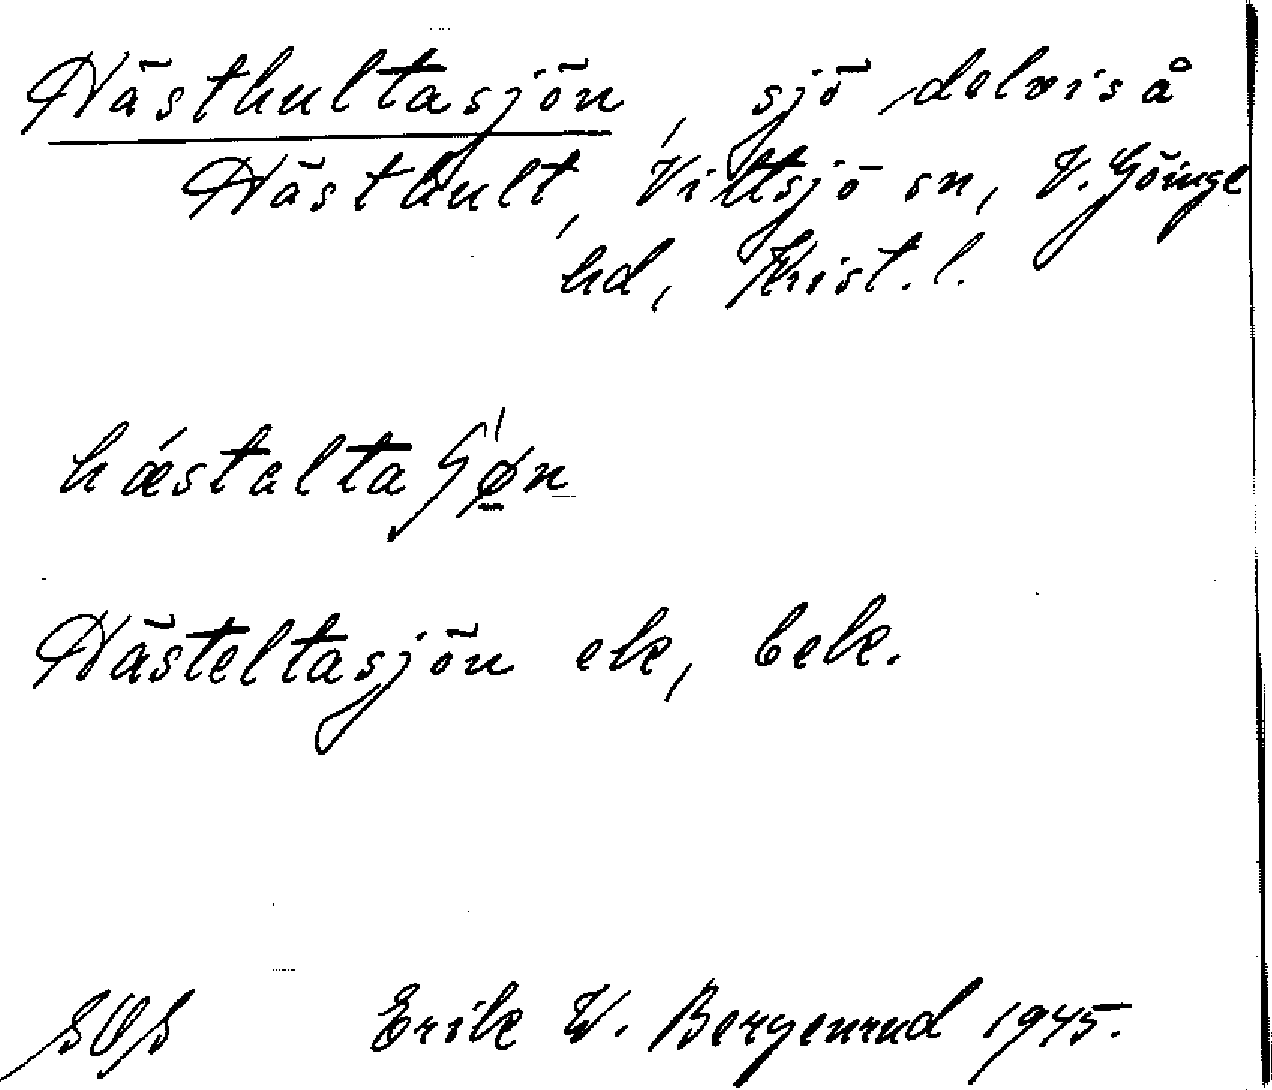 Hästhultasjön, sjö delvis å
Hästhult, Vittsjö sn, V. Göinge
hd, Krist. l.
hǽstəltaʃǿn
Hästeltasjön ek, bek.
SOS Erik W. Bergenrud 1945.